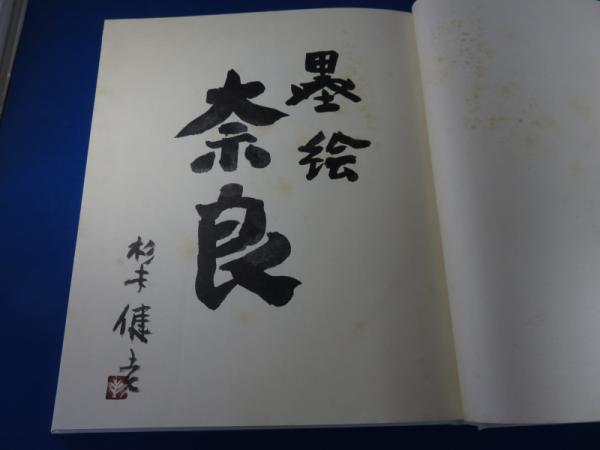 墨絵
奈良
杉本健吉